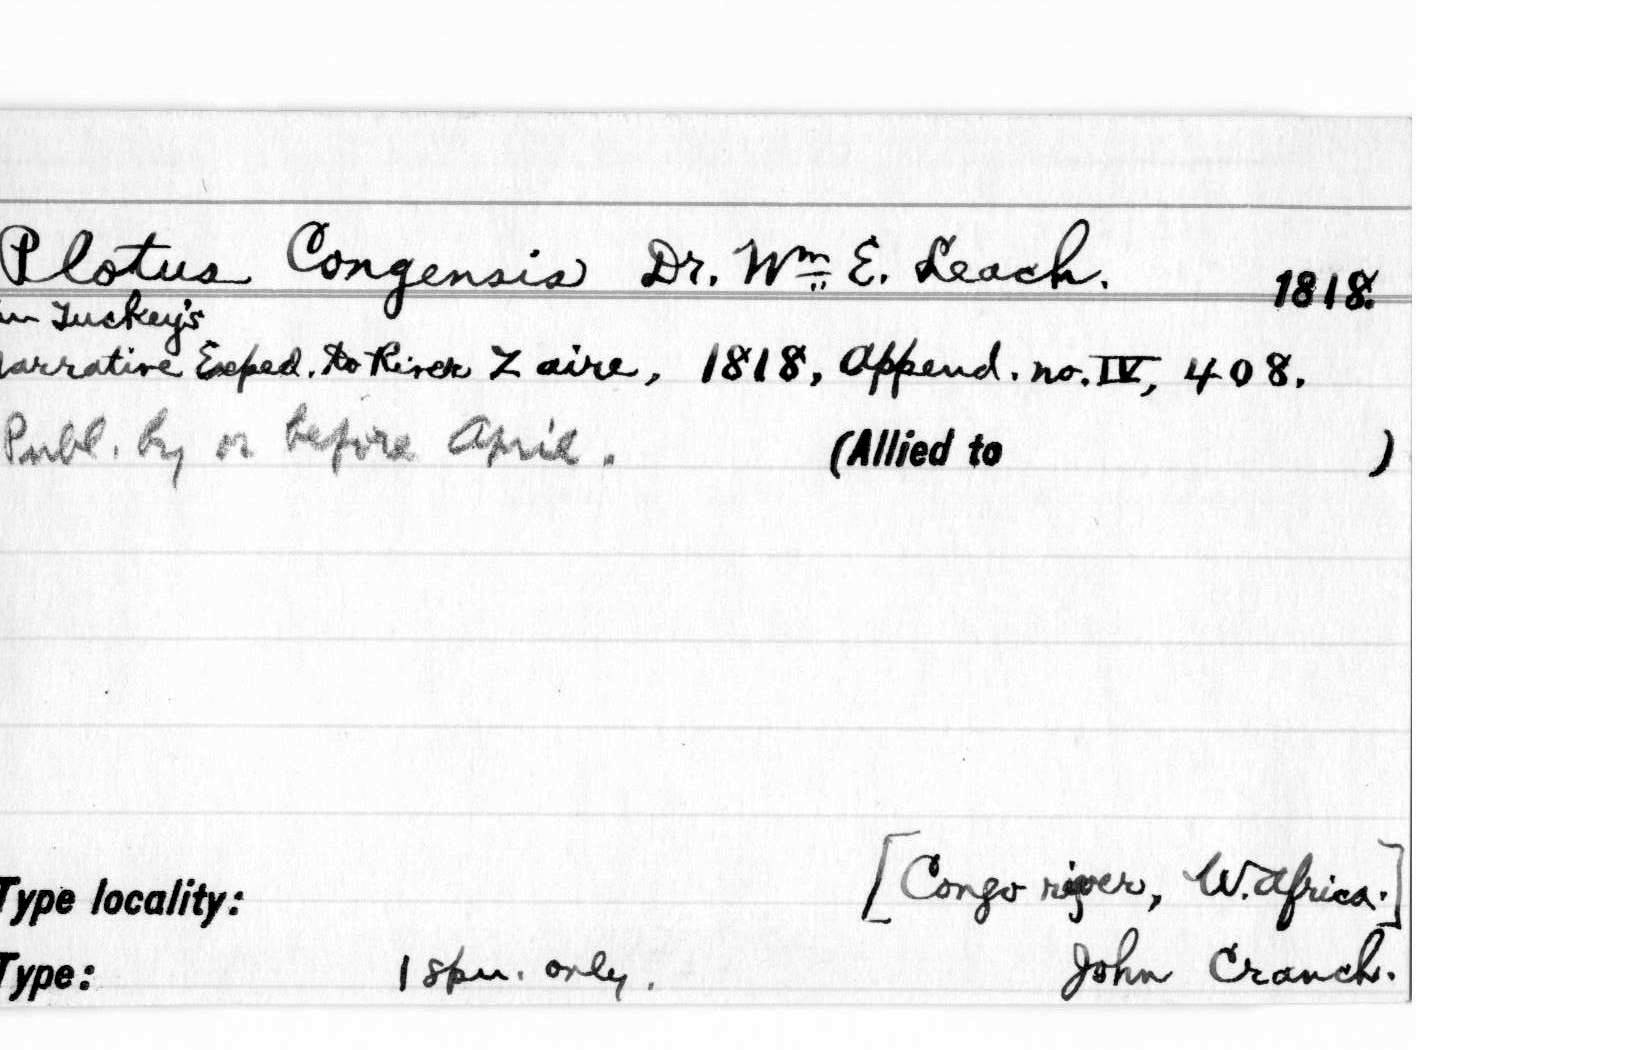 Plotus Congensis Dr. Wm. E. Leach. 1818.
in Tuckey's
Narrative Exped. to River Zaire, 1818, Append. no. IV, 408.
Publ. by or before April. (Allied to )
Type locality: [Congo river, W. Africa.]
Type: 1 spn. only. John Cranch.